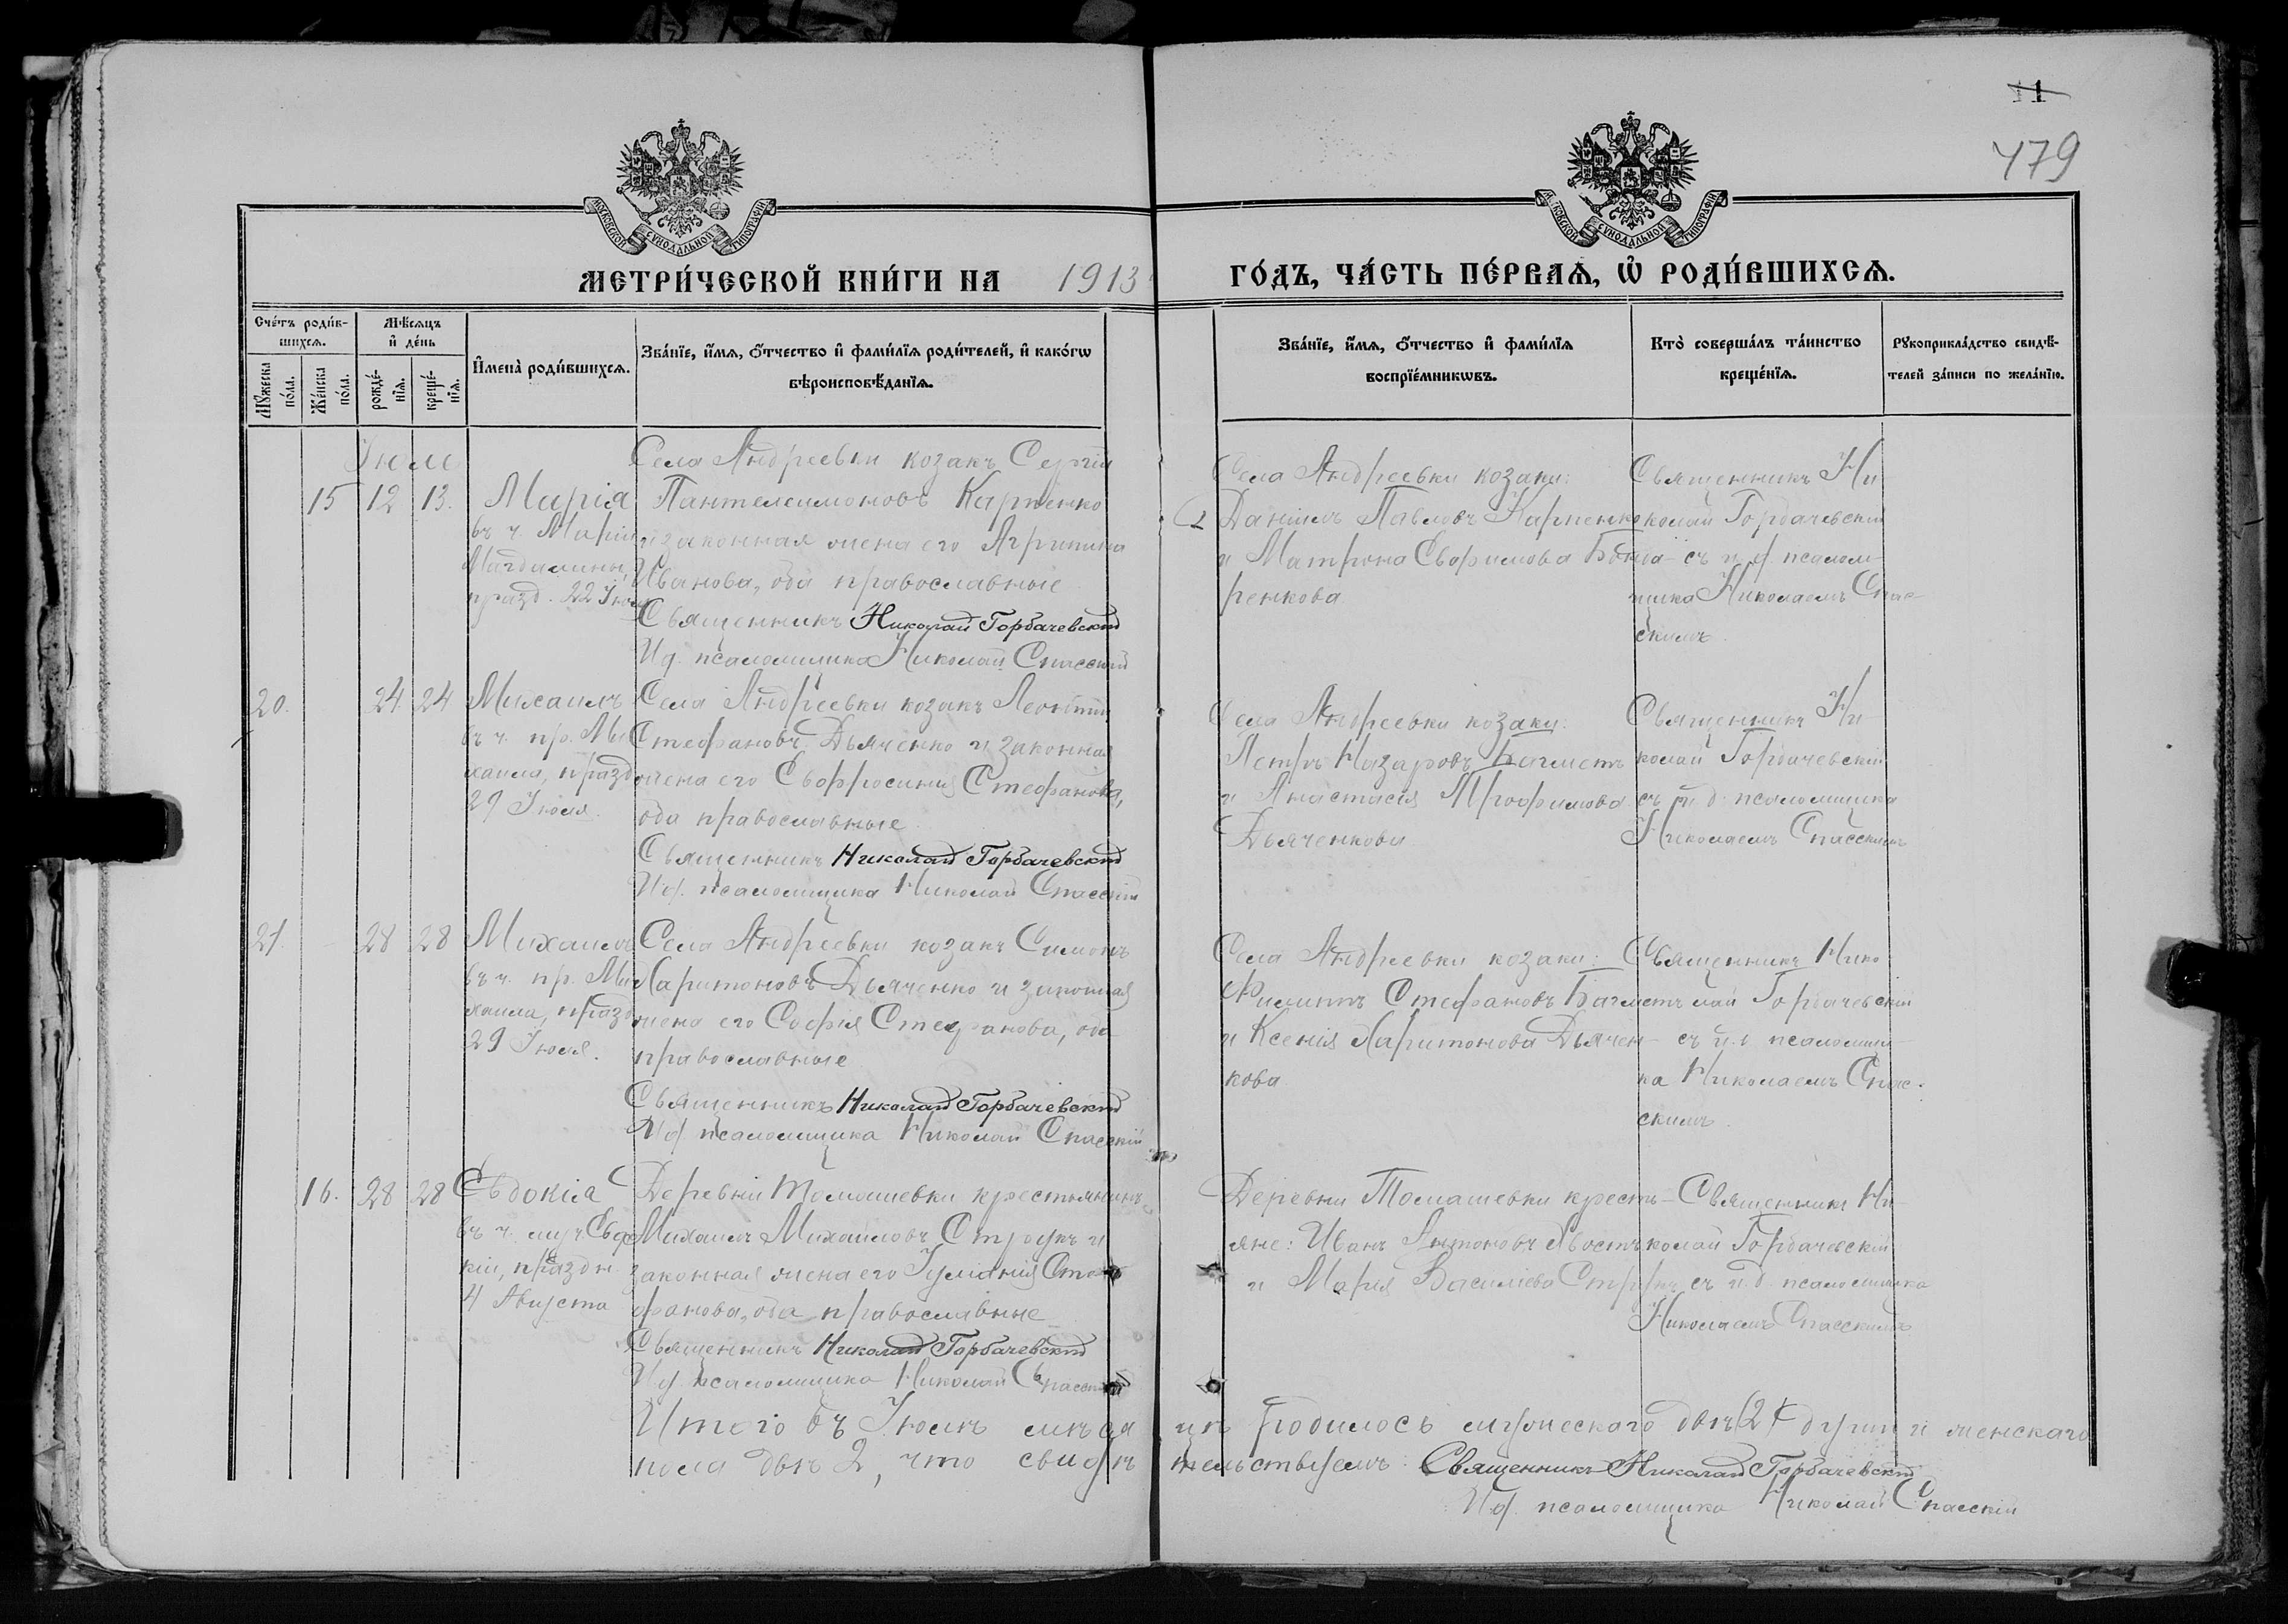 11
479
МОСКОВСКОЙ СѴНОДАЛЬНОЙ ТИПОГРАФІИ
МОСКОВСКОЙ СѴНОДАЛЬНОЙ ТИПОГРАФІИ
МЕТРИ́ЧЕСКОЙ КНИ́ГИ НА 1913
ГО́ДЪ, ЧА́СТЬ ПЕ́РВАѦ, Ѡ҆ РОДИ́ВШИХСѦ.
Сче́тъ роди́в-
шихсѧ.
Мѣ́сѧцъ
и҆ де́нь
Мꙋ́жеска по́ла.
Же́нска по́ла.
рожде́-
нїѧ.
креще́-
нїѧ.
И҆мена̀ роди́вшихсѧ.
Зва́нїе, и҆́мѧ, ѻ҆́тчество и҆ фами́лїѧ роди́телей, и҆ како́гѡ
вѣроисповѣ́данїѧ.
Зва́нїе, и҆́мѧ, ѻ҆́тчество и҆ фами́лїѧ
воспрїе́мникѡвъ.
Кто̀ соверша́лъ та́инство
креще́нїѧ.
Рꙋкоприкла́дство свидѣ́-
телей за́писи по жела́нїю.
Іюле
15 12 13. Марія
въ ч. Маріи
Магдалины,
празд. 22 Іюля
Села Андреевки козакъ Сергій
Пантелеимоновъ Карпенко
и законная жена его Агрипина
Иванова, оба православные
Священникъ Николай Горбачевскій
И д. псаломщика Николай Спасскій
Села Андреевки козаки:
Даніилъ Павловъ Карпенко
и Матрона Евфимова Бонда-
ренкова
Священникъ Ни-
колай Горбачевскій
съ и. д. псалом-
щика Николаемъ Спас-
скимъ.
20. 24 24 Михаилъ
въ ч. пр. Ми
хаила, празд
29 Іюля.
Села Андреевки козакъ Леонтій
Стефановъ Дьяченко и законная
жена его Евфросинія Стефанова,
оба православные
Священникъ Николай Горбачевскій
И д. псаломщика Николай Спасскій
Села Андреевки козаки:
Петръ Назаровъ Багметъ
и Анастасія Трофимова
Дьяченкова
Священникъ Ни-
колай Горбачевскій
съ и. д. псаломщика
Николаемъ Спасскимъ
21. 28 28 Михаилъ
въ ч. пр. Ми
хаила, празд
29 Іюля.
Села Андреевки козакъ Симонъ
Харитоновъ Дьяченко и законная
жена его Софія Стефанова, оба
православные
Священникъ Николай Горбачевскій
И д. псаломщика Николай Спасскій
Села Андреевки козаки:
Филиппъ Стефановъ Багметъ
и Ксенія Харитонова Дьячен-
кова
Священникъ Нико
лай Горбачевскій
съ и. д. псаломщи-
ка Николаемъ Спас-
скимъ.
16. 28 28 Евдокіа
въ ч. муч. Евдо
кіи, праздн.
4 Августа
Деревни Томашевки крестьянинъ
Михаилъ Михайловъ Струкъ и
законная жена его Іуліанія Сте
фанова, оба православные
Священникъ Николай Горбачевскій
И д. псаломщика Николай Спасскій
Деревни Томашевки кресть-
яне: Иванъ Антоновъ Хвостъ
и Марія Василіева Струкъ
Священникъ Ни-
колай Горбачевскій
съ и. д. псаломщика
Николаемъ Спасскимъ
Итого въ Іюлѣ мѣся цѣ родилось мужескаго двѣ (2) души и женскаго
пола двѣ 2, что свидѣ тельствуемъ: Священникъ Николай Горбачевскій
И д. псаломщика Николай Спасскій